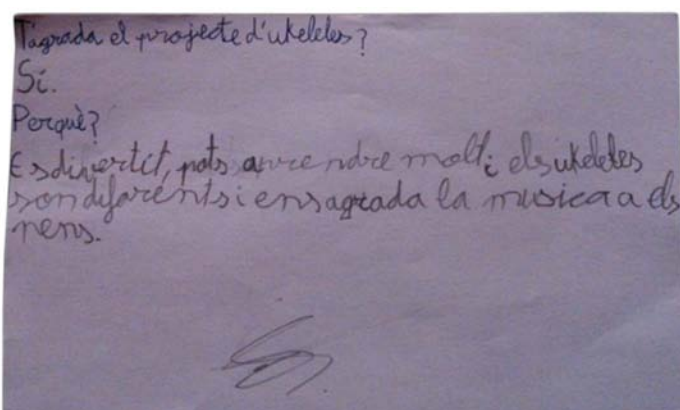 T'agrada el projecte d'ukeleles?
Sí.
Perquè?
Es divertit, pots aprendre molt i els ukeleles
son difarents i ens agrada la musica a els
nens.